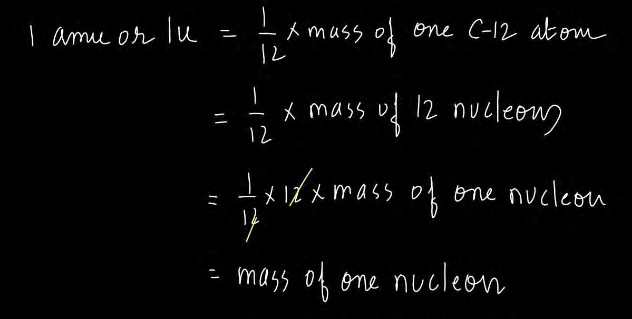 1 amu or 1u = 1/12 x mass of one C-12 atom
= 1/12 x mass of 12 nucleons
= 1/12 x 12 x mass of one nucleon
= mass of one nucleon